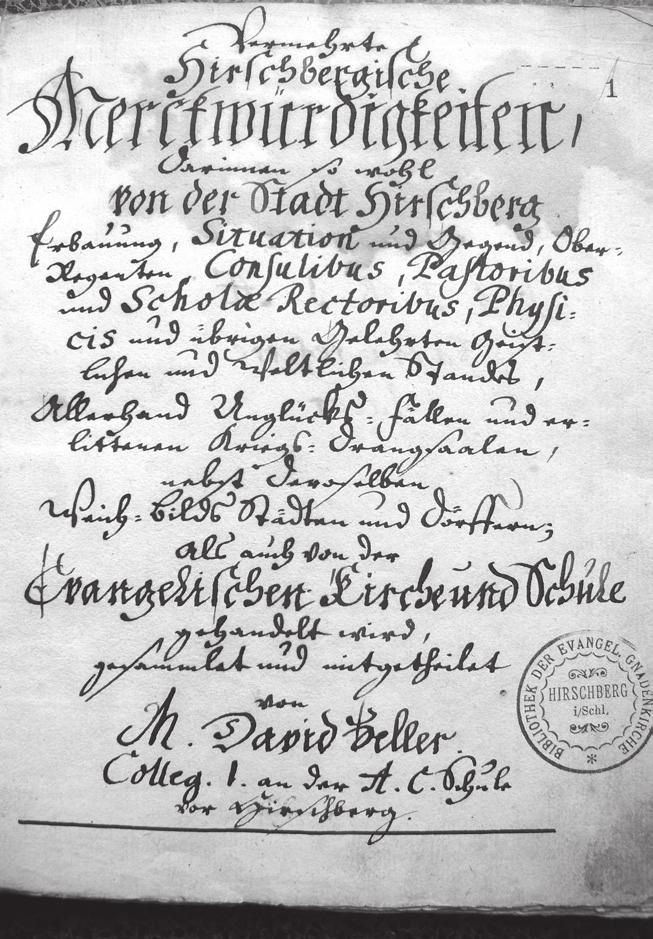 Vermehrte
Hirschbergische
1
Merckwürdigkeiten,
Darinnen so wohl
von der Stadt Hirschberg
Erbauung, Situation und Gegend, Ober-
Regenten, Consulibus, Pastoribus
und Scholæ Rectoribus, Physi-
cis und übrigen Gelehrten Geist-
lichen und Weltlichen Standes,
Allerhand Unglücks-Fällen und er-
littenen Kriegs-Drangsaalen,
nebst deroselben
Weich-Bilds Städten und Dörffern;
als auch von der
Evangelischen Kirche und Schule
gehandelt wird,
gesammlet und mitgetheilet
von
M. David Zeller.
Colleg. 1. an der A. C. Schule
vor Hirschberg.
BIBLIOTHEK DER EVANGEL. GNADENKIRCHE
HIRSCHBERG
i/Schl.